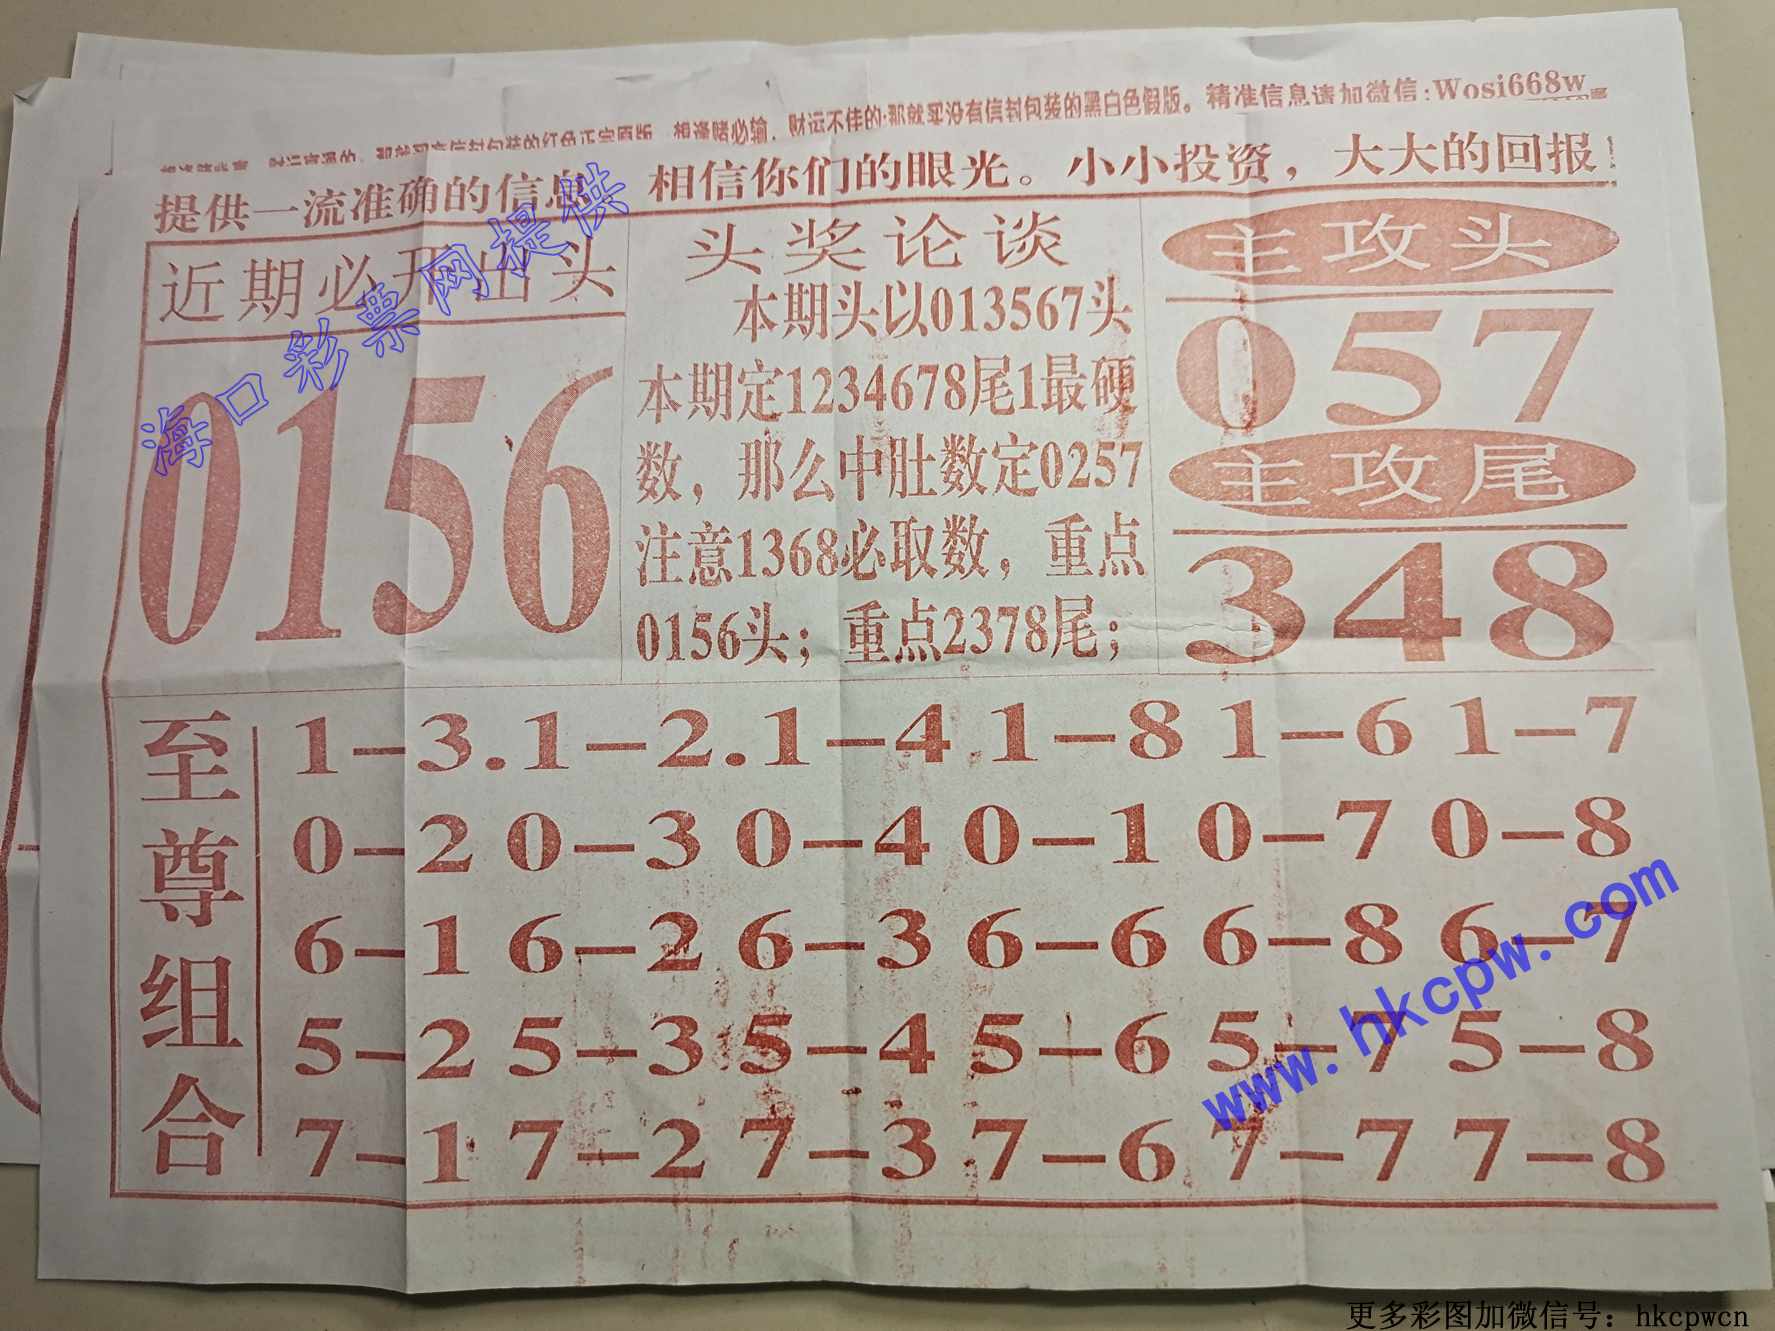 财运不佳的·那就买没有信封包装的黑白色假版。精准信息请加微信:Wosi668w
提供一流准确的信息 相信你们的眼光。小小投资，大大的回报！
近期必开出头
0156
头奖论谈
本期头以013567头
本期定1234678尾1最硬
数，那么中肚数定0257
注意1368必取数，重点
0156头；重点2378尾；
主攻头
057
主攻尾
348
至尊组合
1-3.1-2.1-4.1-8 1-6 1-7
0-2 0-3 0-4 0-1 0-7 0-8
6-1 6-2 6-3 6-6 6-8 6-7
5-2 5-3 5-4 5-6 5-7 5-8
7-1 7-2 7-3 7-6 7-7 7-8
海口彩票网提供
www.hkcpw.com
更多彩图加微信号：hkcpwcn